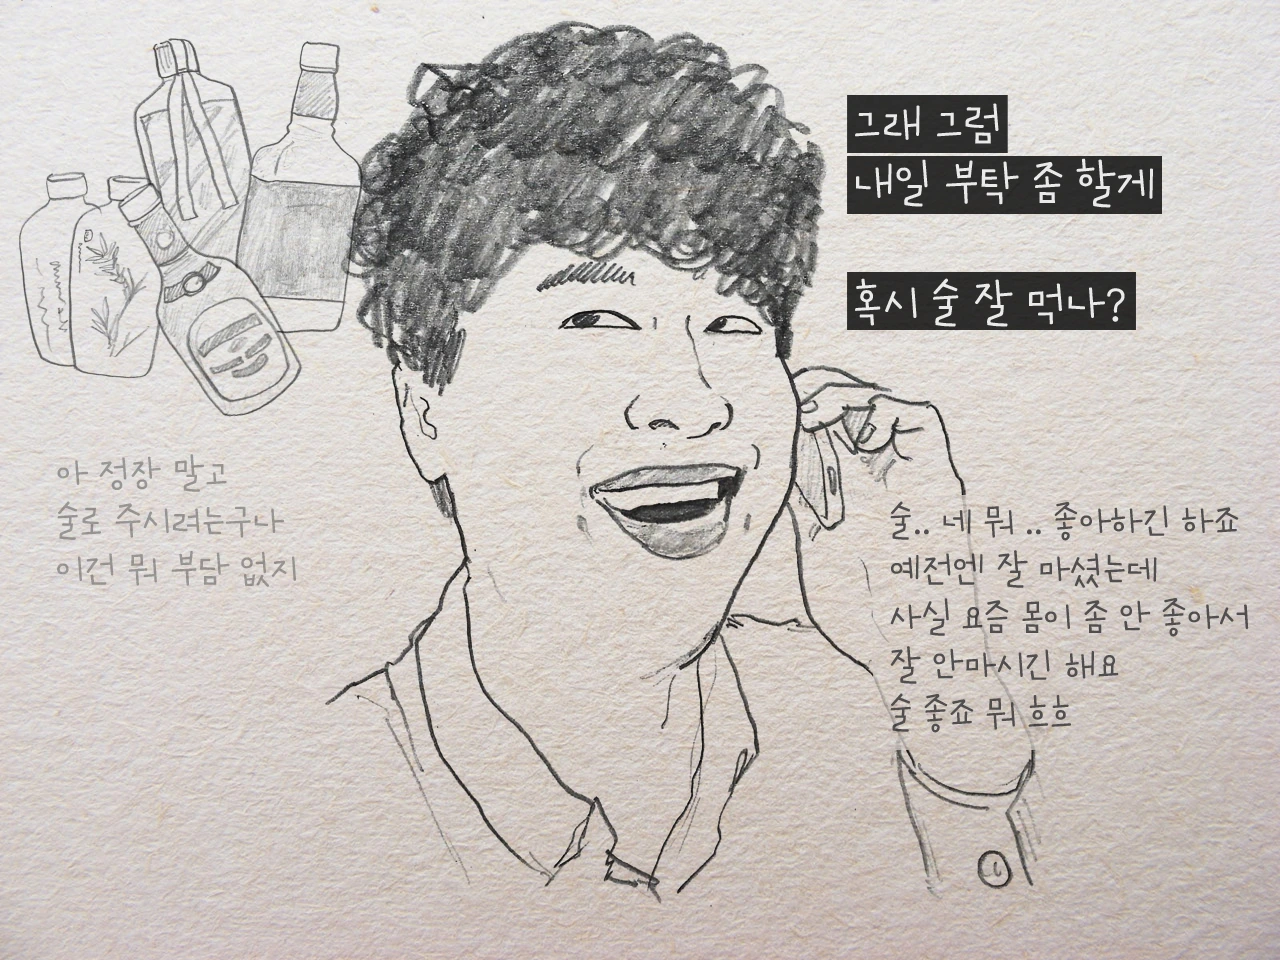 그래 그럼
내일 부탁 좀 할게
혹시 술 잘 먹나?
아 정장 말고
술로 주시려는구나
이건 뭐 부담 없지
술.. 네 뭐 .. 좋아하긴 하죠
예전엔 잘 마셨는데
사실 요즘 몸이 좀 안 좋아서
잘 안마시긴 해요
술 좋죠 뭐 흐흐